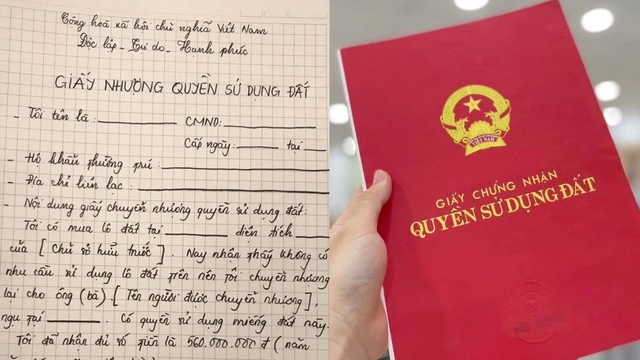 Cộng hoà xã hội chủ nghĩa Việt Nam
Độc lập - Tự do - Hạnh phúc
GIẤY NHƯỢNG QUYỀN SỬ DỤNG ĐẤT
- Tôi tên là : __________ CMND: __________
Cấp ngày: ______ tại ____
- Hộ khẩu thường trú : __________
- Địa chỉ liên lạc : __________
- Nội dung giấy chuyển nhượng quyền sử dụng đất:
Tôi có mua lô đất tại ______ diện tích ______
của [ Chủ sở hữu trước ]. Nay nhận thấy không có
nhu cầu sử dụng lô đất trên nên tôi chuyển nhượng
lại cho ông (bà). [ Tên người được chuyển nhượng ],
ngụ tại ______. Có quyền sử dụng miếng đất này.
Tôi đã nhận đủ số tiền là 560.000.000 đ ( năm
VIỆT NAM
GIẤY CHỨNG NHẬN
QUYỀN SỬ DỤNG ĐẤT